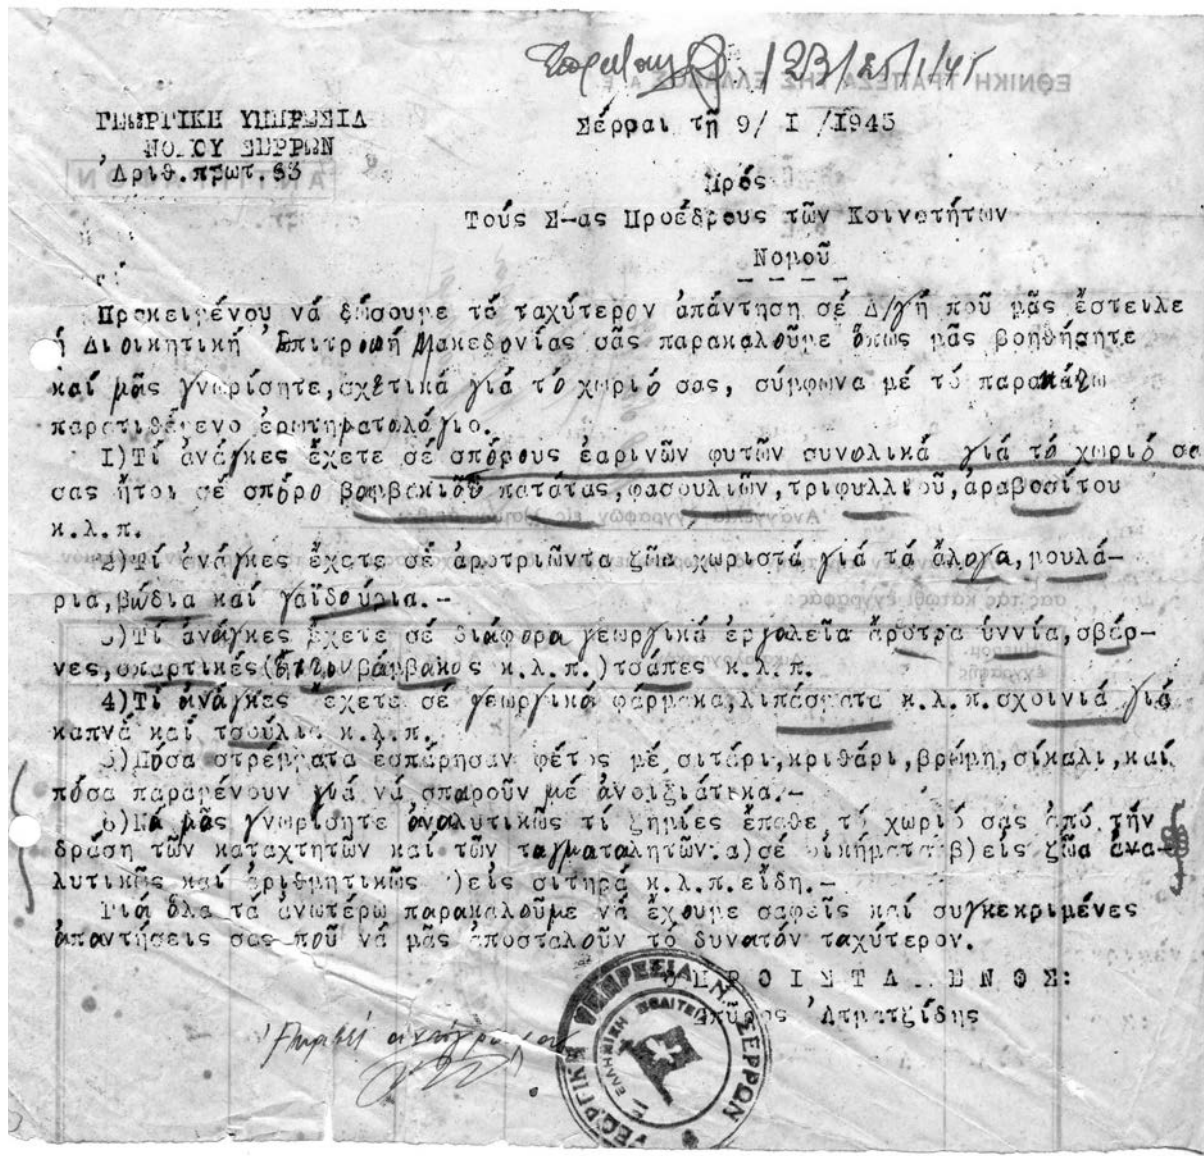 123/25/1/45
ΕΘΝΙΚΗ ΤΡΑΠΕΖΑ ΤΗΣ ΕΛΛΑΔΟΣ Α.Ε.
ΓΕΩΡΓΙΚΗ ΥΠΗΡΕΣΙΑ
ΝΟΜΟΥ ΣΕΡΡΩΝ
Ἀριθ.πρωτ.83
Σέρραι τῇ 9/ I /I945
Πρός
Τούς Σ-ας Προέδρους τῶν Κοινοτήτων
Νομοῦ
Προκειμένου νά δώσουμε τό ταχύτερον ἀπάντηση σέ Δ/γή ποῦ μᾶς ἔστειλε
ἡ Διοικητική Ἐπιτροπή Μακεδονίας σᾶς παρακαλοῦμε ὅπως μᾶς βοηθήσητε
καί μᾶς γνωρίσητε,σχετικά γιά τό χωριό σας, σύμφωνα μέ τό παρακάτω
παρατιθέμενο ἐρωτηματολόγιο.
I)Τί ἀνάγκες ἔχετε σέ σπόρους ἐαρινῶν φυτῶν συνολικά γιά τό χωριό σα
σας ἤτοι σέ σπόρο βαμβακιοῦ πατάτας,φασουλιῶν,τριφυλλιοῦ,ἀραβοσίτου
κ.λ.π.
2)Τί ἀνάγκες ἔχετε σέ ἀροτριῶντα ζῶα χωριστά γιά τά ἄλογα,μουλά-
ρια,βώδια καί γαϊδούρια.-
3)Τί ἀνάγκες ἔχετε σέ διάφορα γεωργικά ἐργαλεῖα ἄροτρα ὑννία,σβάρ-
νες,σπαρτικές( βάμβακος κ.λ.π.)τσάπες κ.λ.π.
4)Τί ἀνάγκες ἔχετε σέ γεωργικά φάρμακα,λιπάσματα κ.λ.π.σχοινιά γιά
καπνά καί τσούλια κ.λ.π.
5)Πόσα στρέμματα ἐσπάρησαν φέτος μέ σιτάρι,κριθάρι,βρώμη,σίκαλι,καί
πόσα παραμένουν γιά νά σπαροῦν μέ ἀνοιξιάτικα.-
6)Νά μᾶς γνωρίσητε ἀναλυτικῶς τί ζημίες ἔπαθε τό χωριό σας ἀπό τήν
δράση τῶν καταχτητῶν καί τῶν ταγματαλητῶν:α)σέ οἰκήματα β)εἰς ζῶα ἀνα-
λυτικῶς καί ἀριθμητικῶς )εἰς σιτηρά κ.λ.π.εἴδη.-
Γιά ὅλα τά ἀνωτέρω παρακαλοῦμε νά ἔχουμε σαφεῖς καί συγκεκριμένες
ἀπαντήσεις σας ποῦ νά μᾶς ἀποσταλοῦν τό δυνατόν ταχύτερον.
Ο Π Ρ Ο Ι Σ Τ Α Μ Ε Ν Ο Σ:
Σπῦρος Ἀτματζίδης
ΓΕΩΡΓΙΚΗ ΥΠΗΡΕΣΙΑ Ν. ΣΕΡΡΩΝ
ΕΛΛΗΝΙΚΗ ΠΟΛΙΤΕΙΑ